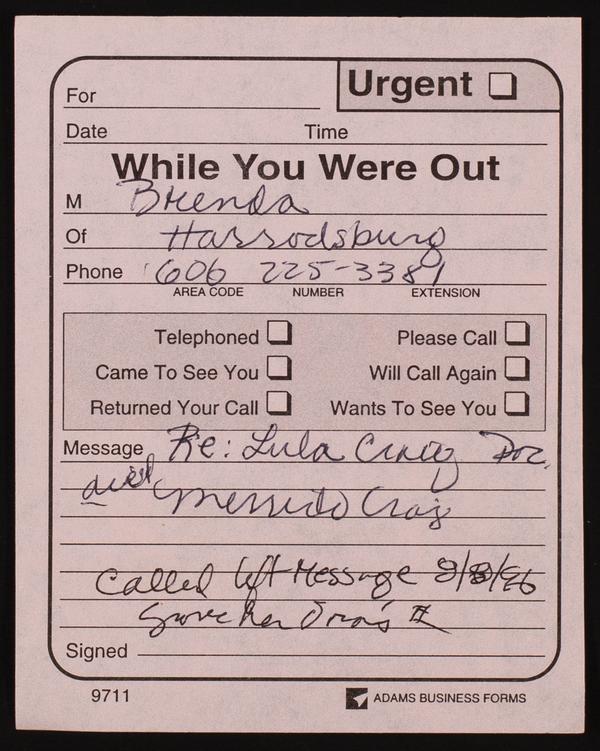 Urgent
For
Date Time
While You Were Out
M Brenda
Of Harrodsburg
Phone 606 225-3381
AREA CODE NUMBER EXTENSION
Telephoned Please Call
Came To See You Will Call Again
Returned Your Call Wants To See You
Message Re: Lula Craig
Craig
Called left Message
Gave her #
Signed
9711 ADAMS BUSINESS FORMS